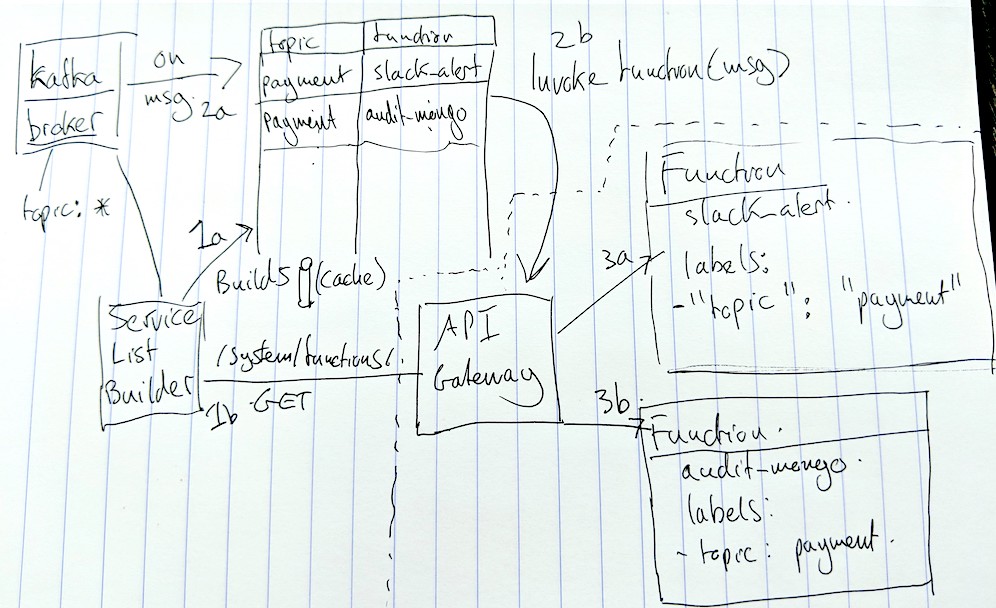 kafka
broker
topic: *
on
msg. 2a
topic function
payment slack_alert
payment audit-mongo
2b
Invoke function(msg)
1a
Builds (cache)
Service
List
Builder
/system/functions/
1b GET
API
Gateway
3a
Function
slack_alert.
labels:
-"topic": "payment"
3b
Function.
audit-mongo.
labels:
- topic: payment.